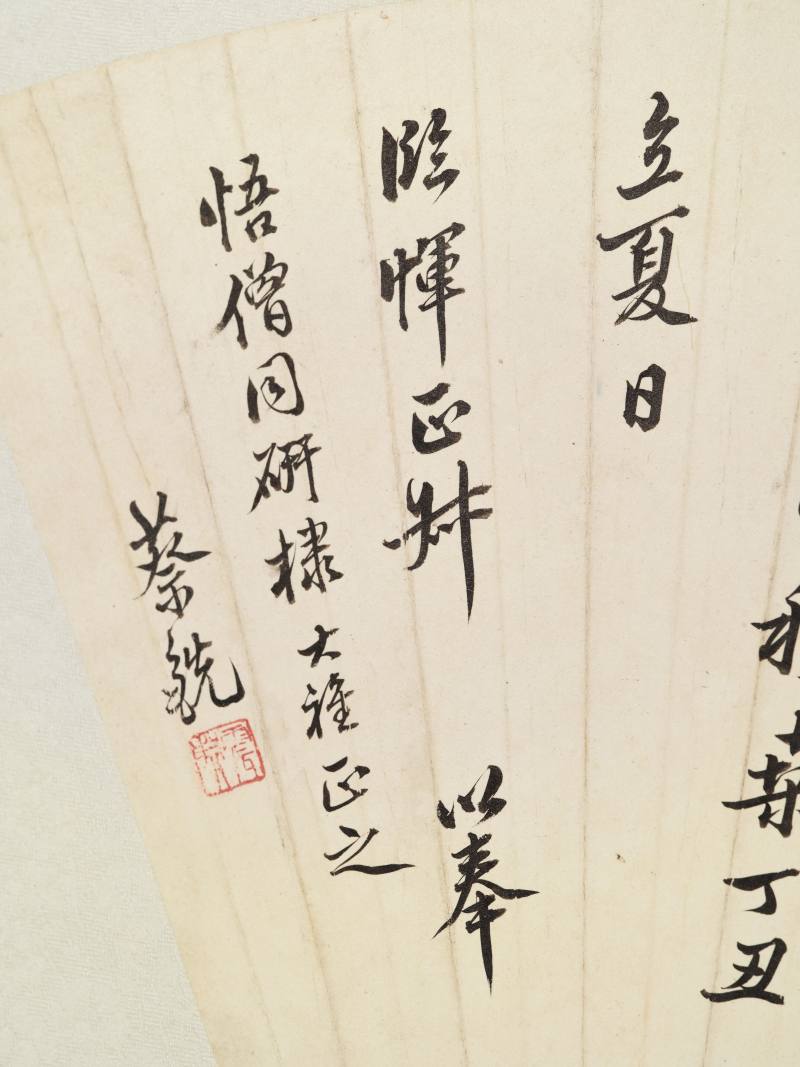 葉丁丑
立夏日
臨惲正叔 以奉
悟僧同研棣大雅正之
蔡銑